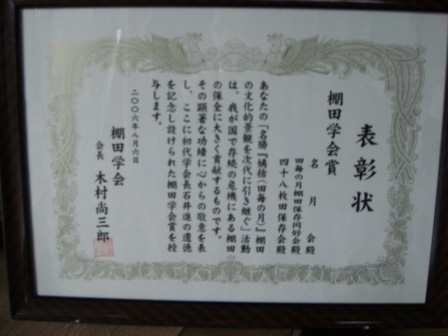 表彰状
棚田学会賞
名月会殿
田毎の月棚田保存同好会殿
四十八枚田保存会殿
あなたの「名勝『姨捨（田毎の月）』棚田
の文化的景観を次代に引き継ぐ」活動
は、我が国で存続の危機にある棚田
の保全に大きく貢献するものです。
その顕著な功績に心からの敬意を表
し、ここに初代学会長石井進の遺徳
を記念し設けられた棚田学会賞を授
与します。
二〇〇六年八月六日
棚田学会
会長 木村尚三郎